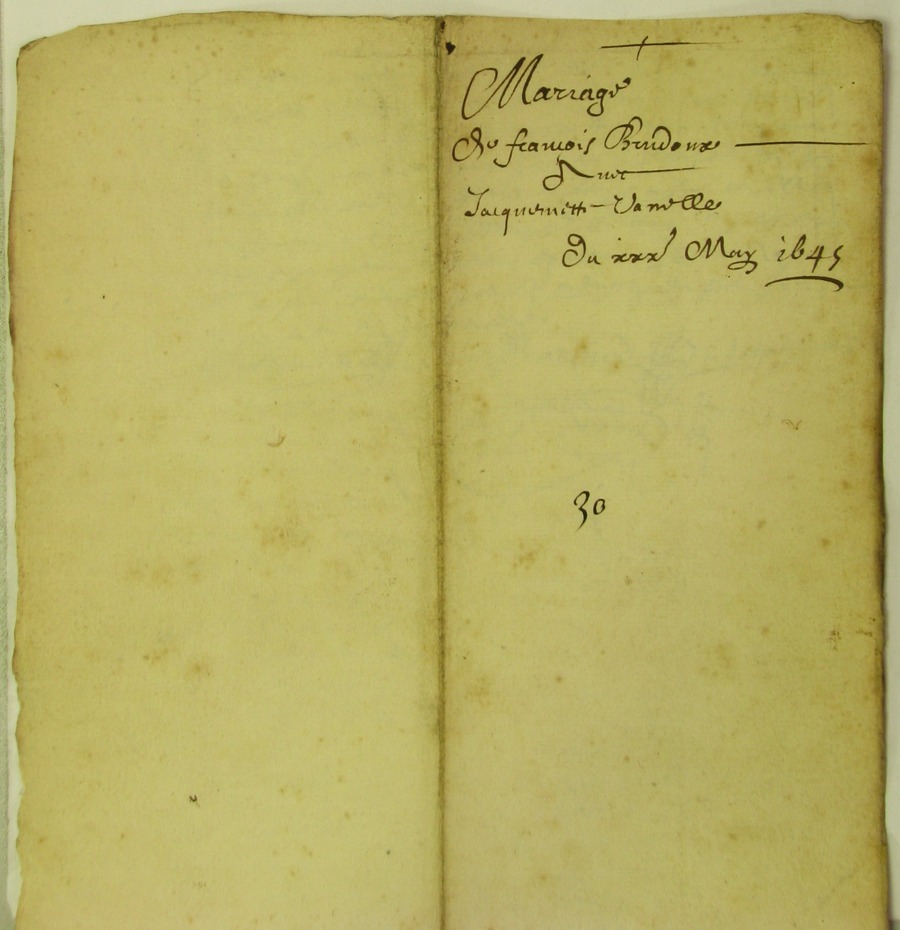 Mariage
De françois Brudoux
Avec
Jacquemette Vanelle
Du xxx May 1645
30